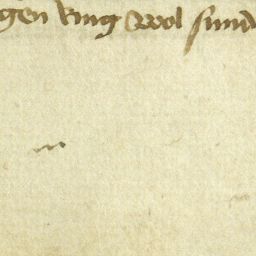 gen king wol sund
m